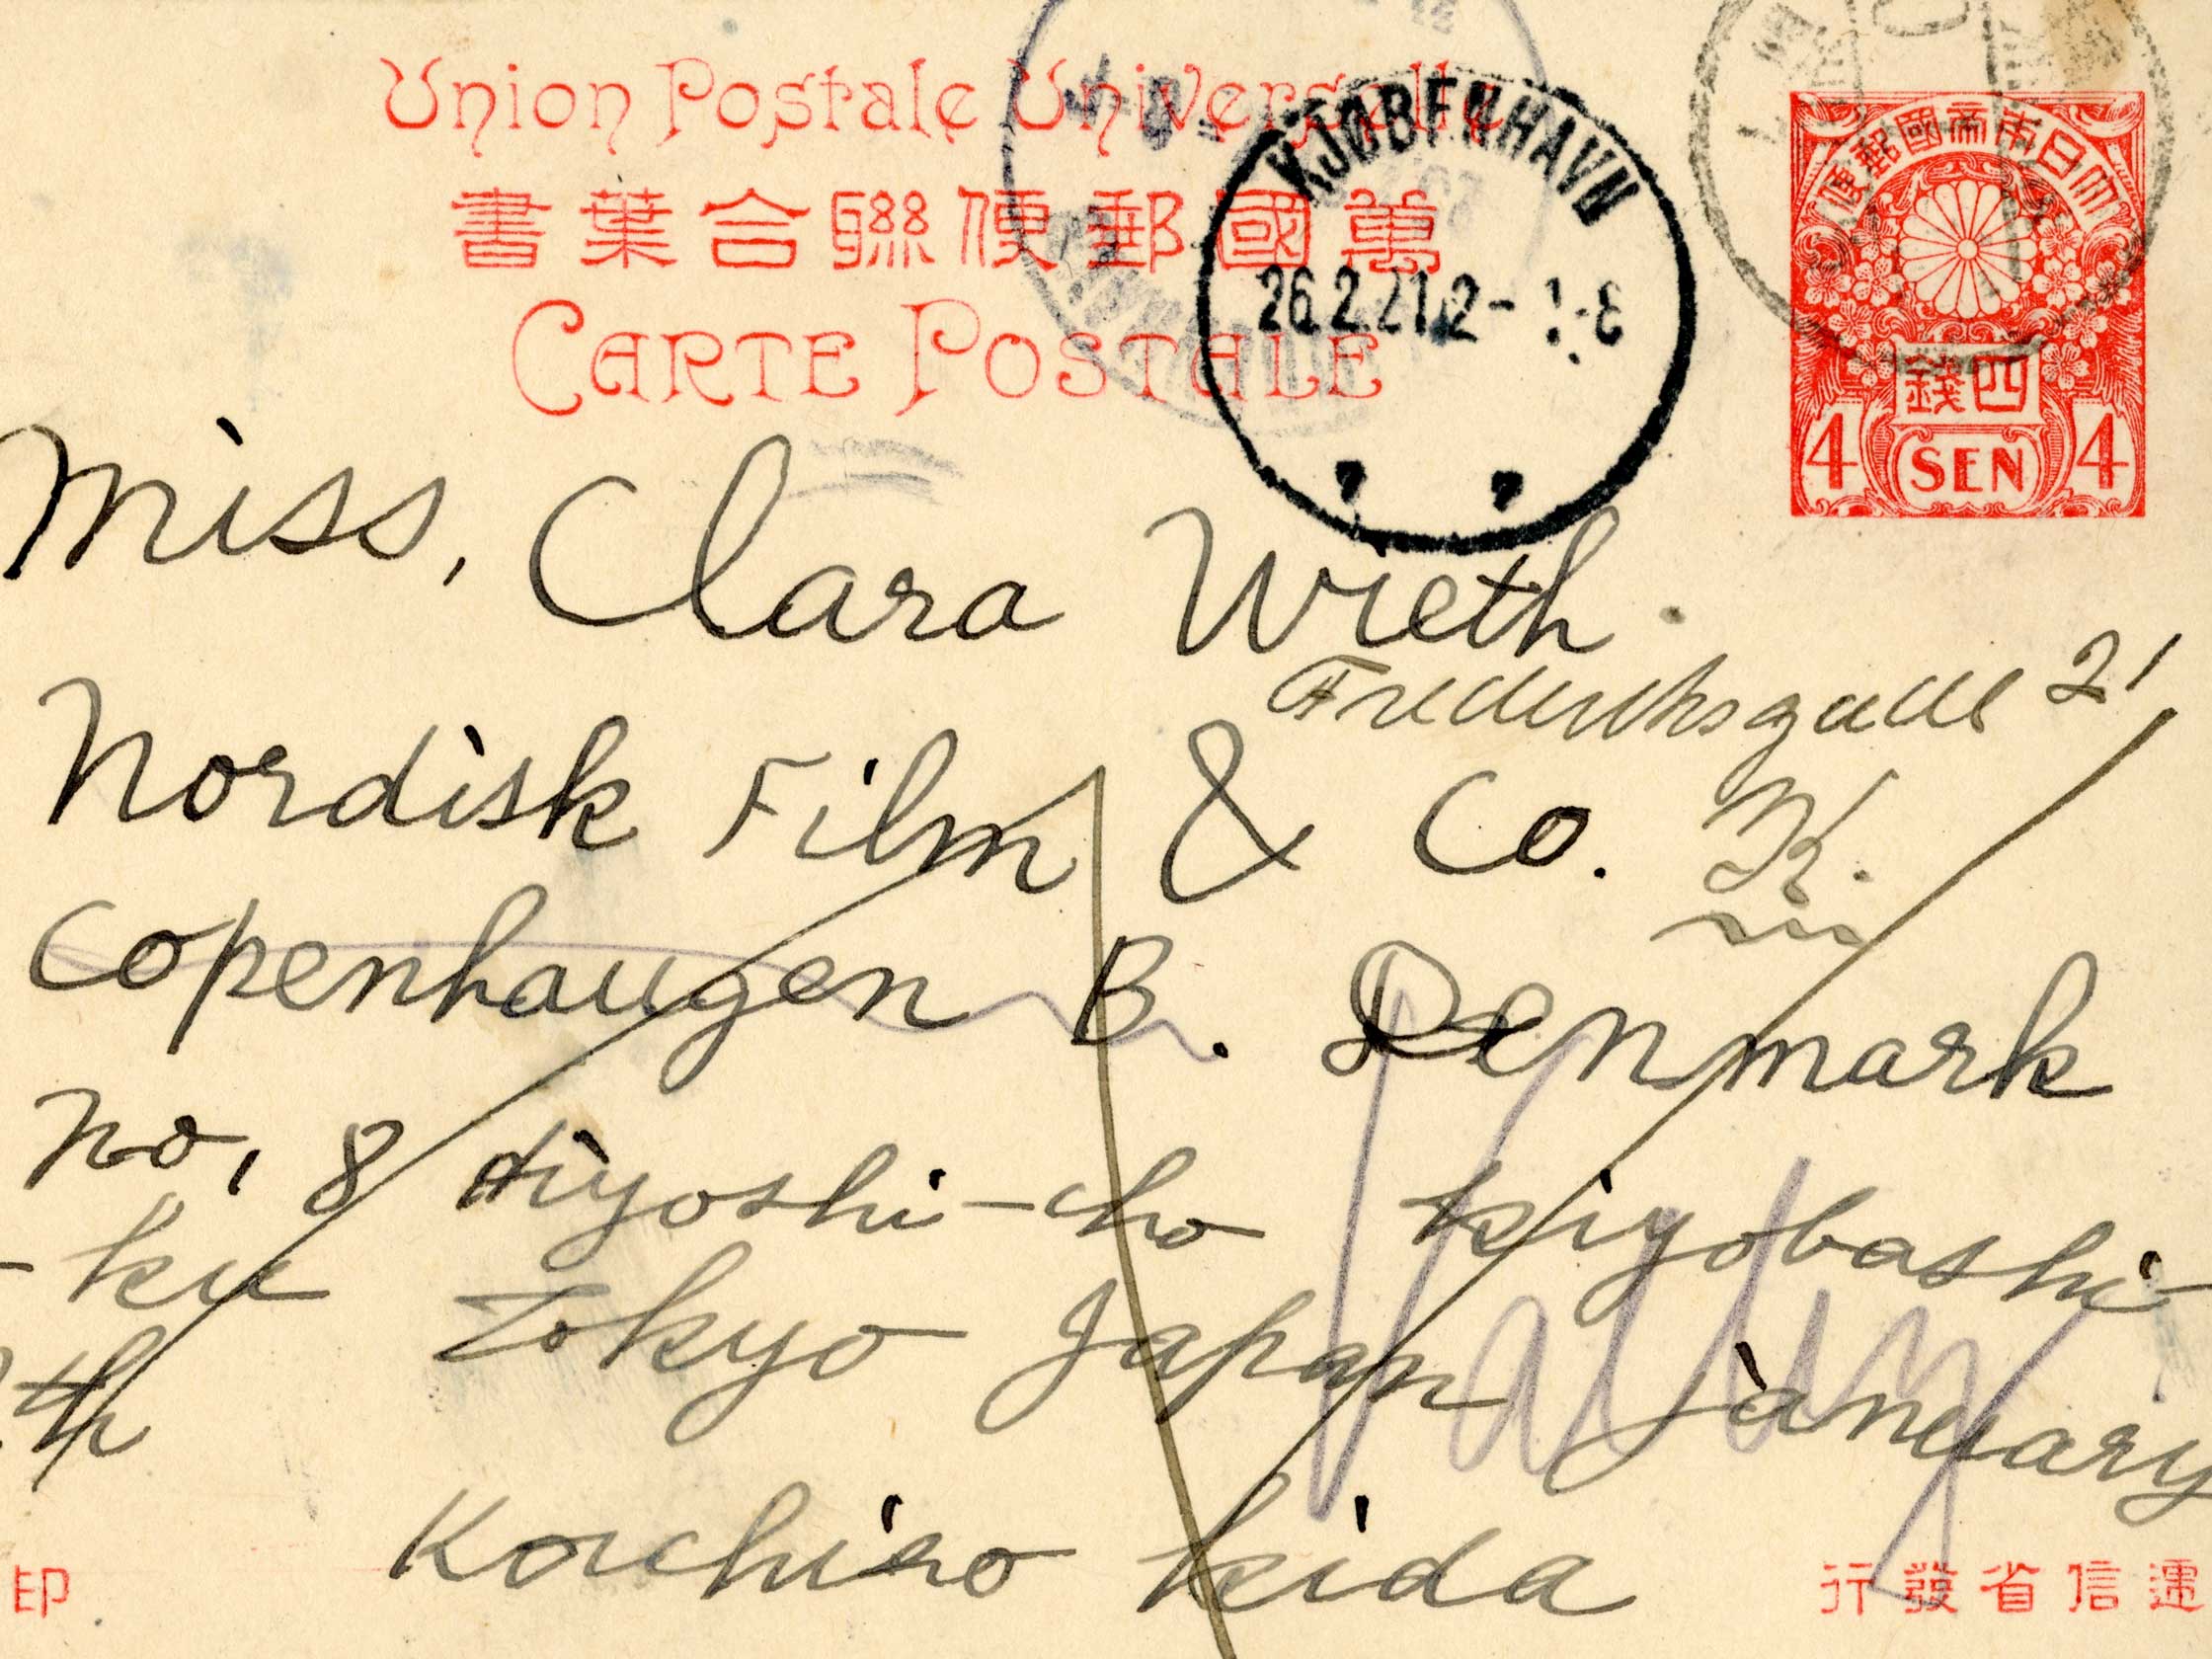 Union Postale Universelle
萬國郵便聯合葉書
CARTE POSTALE
大日本帝國郵便
四錢
4 SEN 4
KJØBENHAVN
26.2.21.
Miss, Clara Wieth
Frederiksgade 21
K.
Nordisk Film & Co.
Copenhaugen B. Denmark
No, 8 Hiyoshi-cho Kiyobashi-
-ku Tokyo Japan January
th
Koichiro Kida
遞信省發行
印